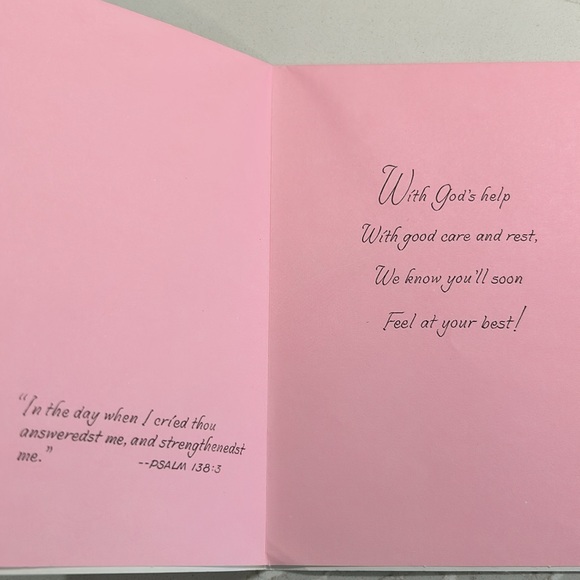 "In the day when I cried thou
answeredst me, and strengthenedst
me."
--PSALM 138:3
With God's help
With good care and rest,
We know you'll soon
Feel at your best!